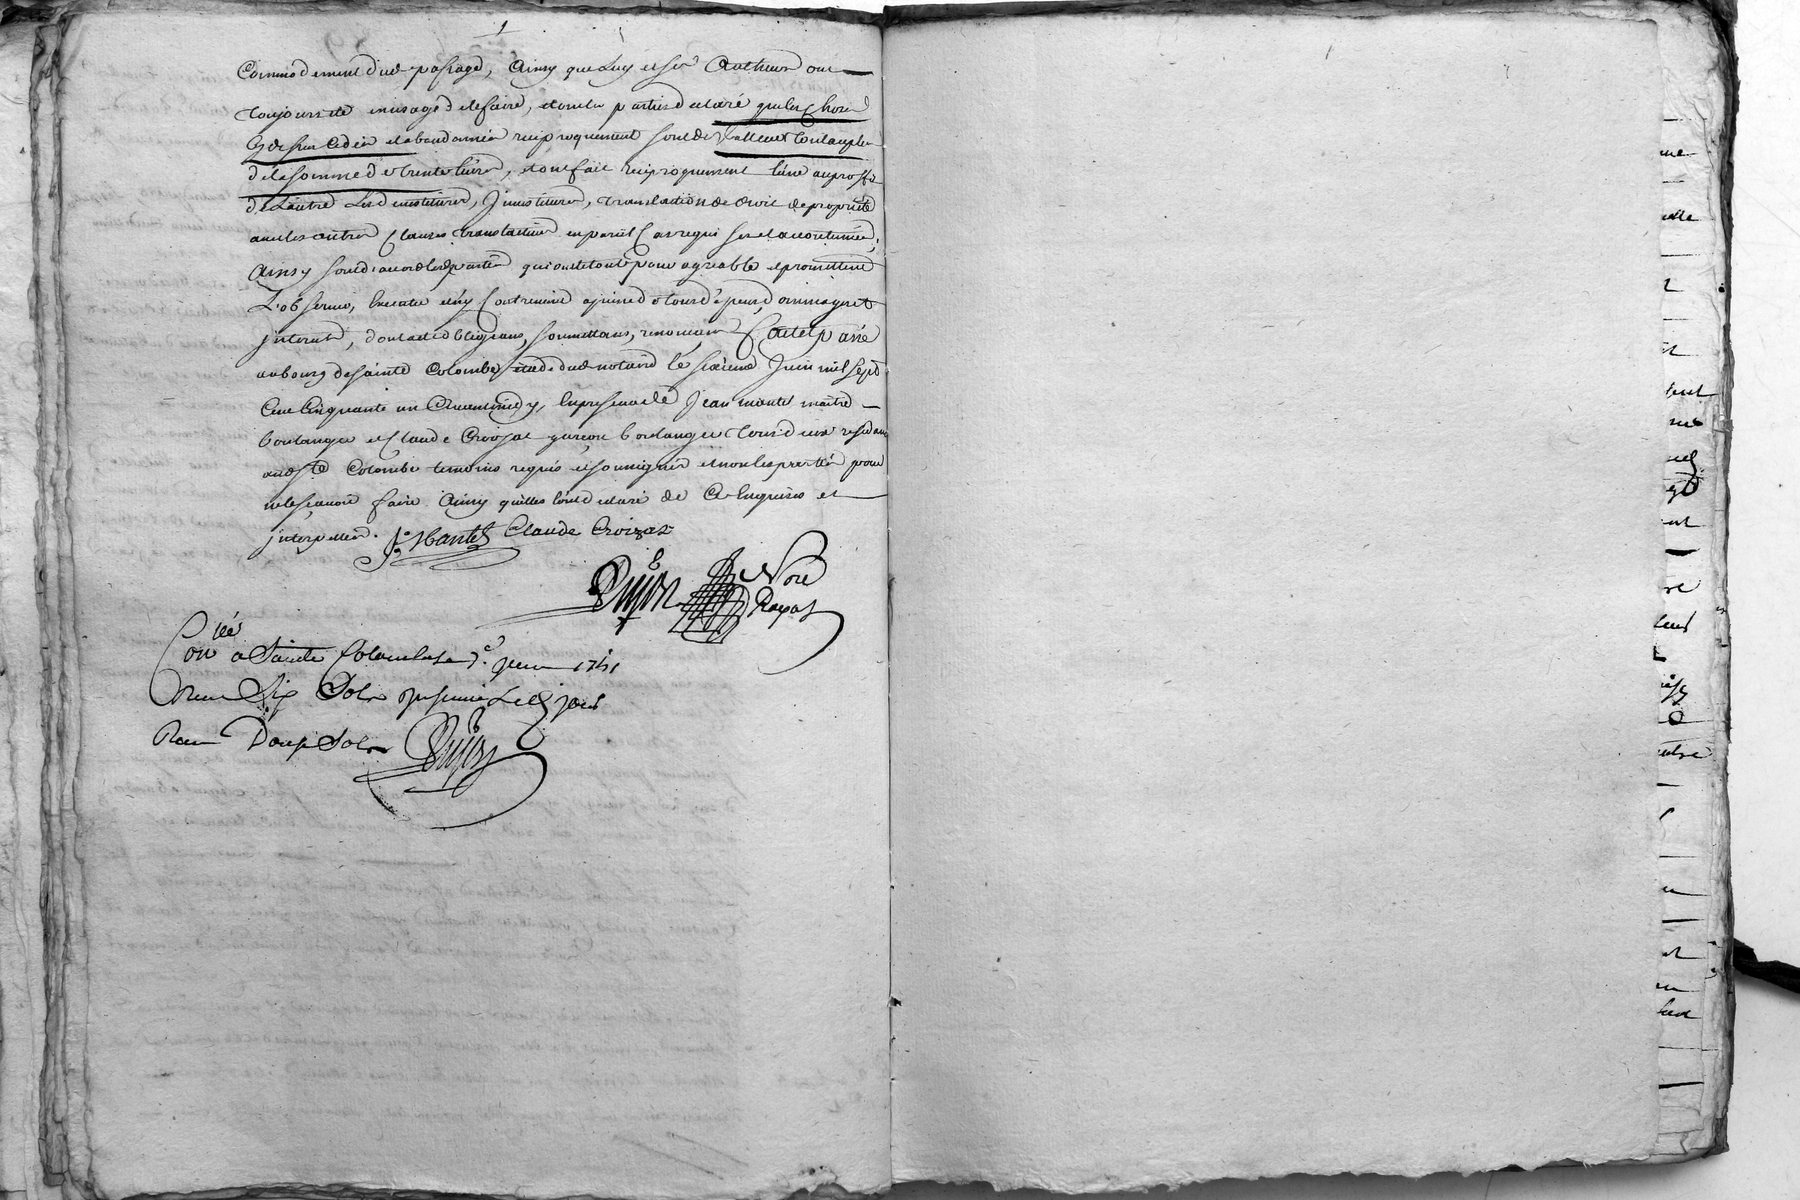 Commodement dud passage, Ainsy que Luy et ses Autheurs ont
toujours été en usage de le faire, et ont les parties declaré que les choses
Cy dessus Cedées et abandonnées reciproquement sont de Valleur tout au plus
de la somme de trente livres, et ont fait reciproquement L'une au proffit
de L'autre Les devestitures, Jnvestitures, translation de droit de proprieté
avec les autres Clauses translatives en pareil Cas requises et accoutumées,
Ainsy sont d'accord lesd parties qui ont le tout pour agreable et promettent
L'observer, Executer et n'y Contrevenir a peine de tous depens, dommages et
jnterests, dont acte obligeans, soumettans, renonceans Fait et passé
au bourg de sainte Colombe, etude dud notaire le sixieme Juin mil sept
Cent Cinquante un Avantmidy, En presence de Jean mantel maitre
boulanger et Claude Croizat garçon boulanger tous deux residans
aud Ste Colombe temoins requis et soussignés et non les parties pour
ne le sçavoir faire Ainsy quelles l'ont declaré de Ce Enquises et
jnterpellées. Jn Mantel Claude Croizat
Dujon Nore
Royal
Conllé a Sainte Colombe le 7e juin 1751
Reçu Six Sols
Reçu Douze Sols Dujon